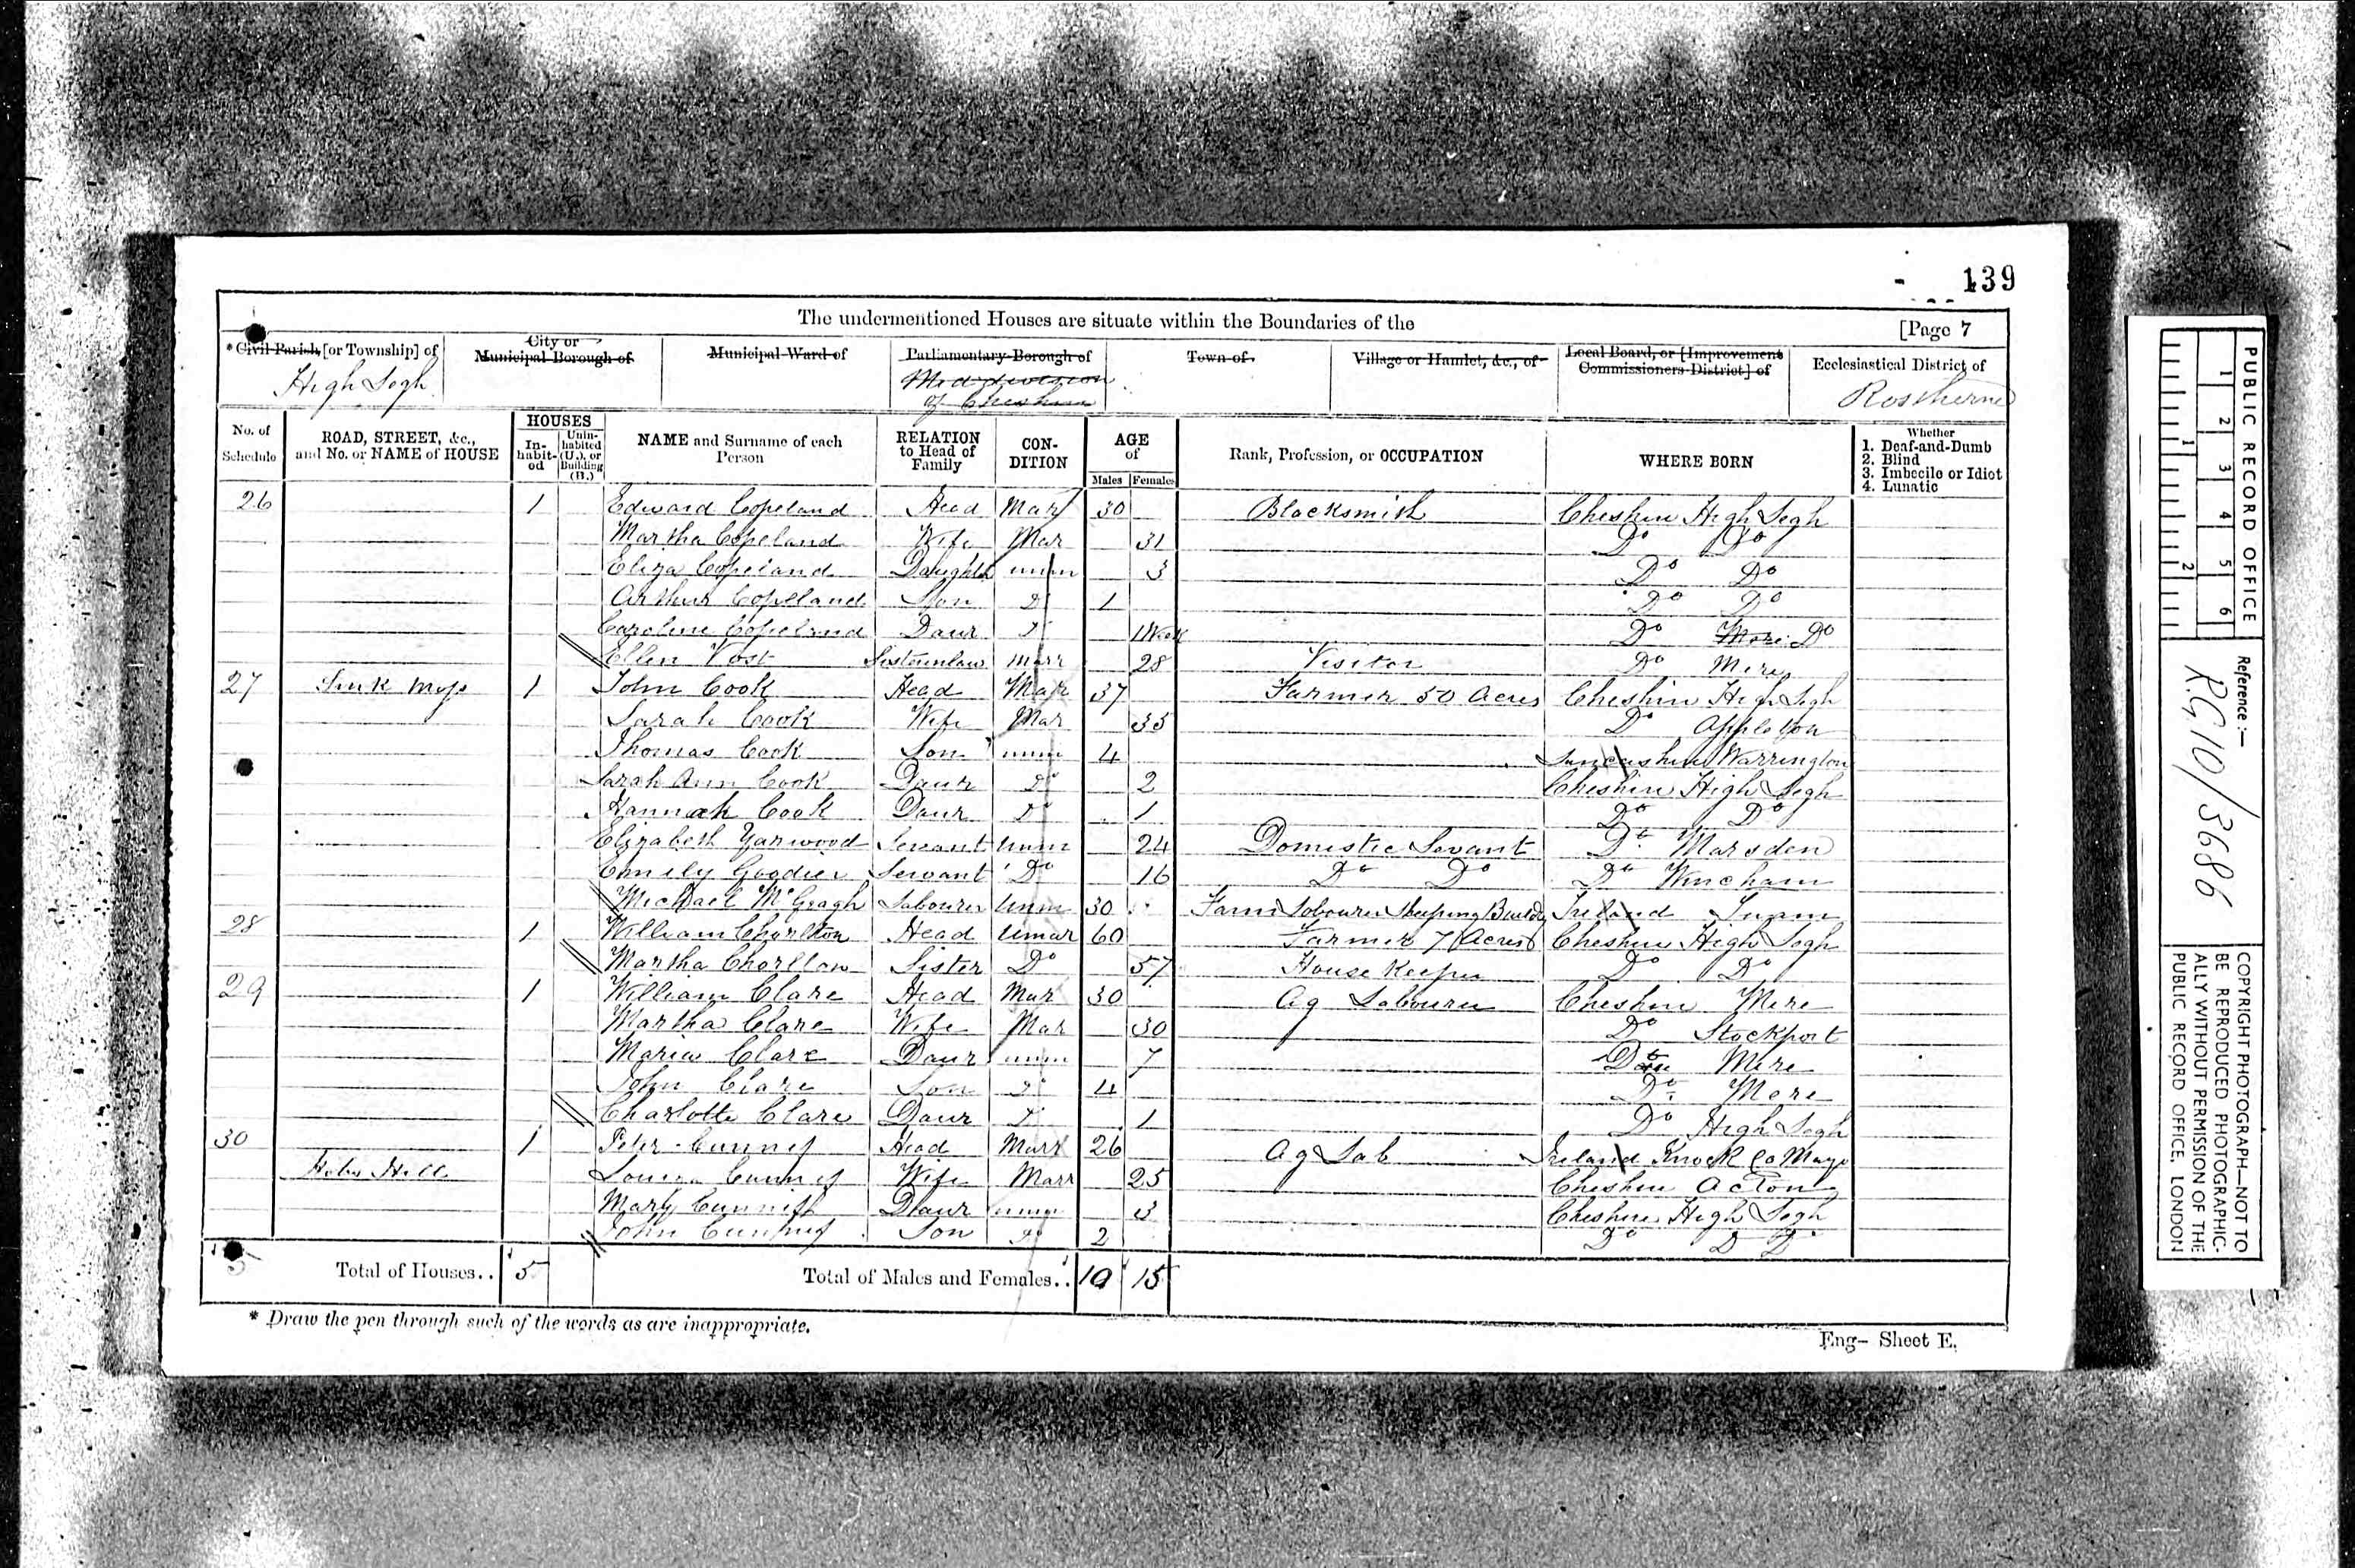 139
The undermentioned Houses are situate within the Boundaries of the
[Page 7
* Civil Parish [or Township] of
City or Municipal Borough of
Municipal Ward of
Parliamentary Borough of
Town of
Village or Hamlet, &c., of
Local Board, or [Improvement Commissioners District] of
Ecclesiastical District of
High Legh
Mid division of Cheshire
Rostherne
No. of Schedule
ROAD, STREET, &c., and No. or NAME of HOUSE
HOUSES
In-habit-ed
Unin-habited (U.), or Building (B.)
NAME and Surname of each Person
RELATION to Head of Family
CON-DITION
AGE of
Males
Females
Rank, Profession, or OCCUPATION
WHERE BORN
Whether
1. Deaf-and-Dumb
2. Blind
3. Imbecile or Idiot
4. Lunatic
26 1 Edward Copeland Head Mar 30 Blacksmith Cheshire High Legh
Martha Copeland Wife Mar 31 Do Do
Eliza Copeland Daughter unm 3 Do Do
Arthur Copeland Son Do 1 Do Do
Caroline Copeland Daur Do 1 Week Do Mere Do
Ellen Vost Sisterinlaw Marr 28 Visitor Do Mere
27 Sink Moss 1 John Cook Head Mar 37 Farmer 50 Acres Cheshire High Legh
Sarah Cook Wife Mar 35 Do Appleton
Thomas Cook Son unm 4 Lancashire Warrington
Sarah Ann Cook Daur Do 2 Cheshire High Legh
Hannah Cook Daur Do 1 Do Do
Elizabeth Yarwood Servant Unm 24 Domestic Servant Do Marsden
Emily Goodier Servant Do 16 Do Do Do Wincham
Michael McGeagh Labourer Unm 30 Farm Labourer Sleeping Ireland
28 1 William Chorlton Head Unmar 60 Farmer 7 Acres Cheshire High Legh
Martha Chorlton Sister Do 57 House Keeper Do Do
29 1 William Clare Head Mar 30 Ag Labourer Cheshire Mere
Martha Clare Wife Mar 30 Do Stockport
Maria Clare Daur unm 7 Do Mere
John Clare Son Do 4 Do Mere
Charlotte Clare Daur Do 1 Do High Legh
30 1 Peter Cunnif Head Marr 26 Ag Lab Ireland Knock Co Mayo
Hill Louisa Cunnif Wife Marr 25 Cheshire Acton
Mary Cunniff Daur unm 3 Cheshire High Legh
John Cunnif Son Do 2 Do D D
5 Total of Houses.. 5 Total of Males and Females.. 10 15
* Draw the pen through such of the words as are inappropriate.
Eng- Sheet E.
PUBLIC RECORD OFFICE
1 2 3 4 5 6
1 2
Reference:-
RG10/3686
COPYRIGHT PHOTOGRAPH—NOT TO
BE REPRODUCED PHOTOGRAPHIC-
ALLY WITHOUT PERMISSION OF THE
PUBLIC RECORD OFFICE, LONDON